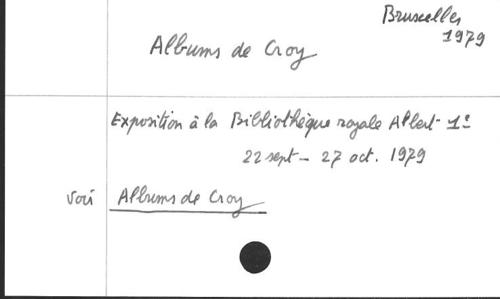 Bruxelles
1979
Albums de Croy
Exposition à la Bibliothèque royale Albert 1e
22 sept - 27 oct. 1979
voir Albums de Croy